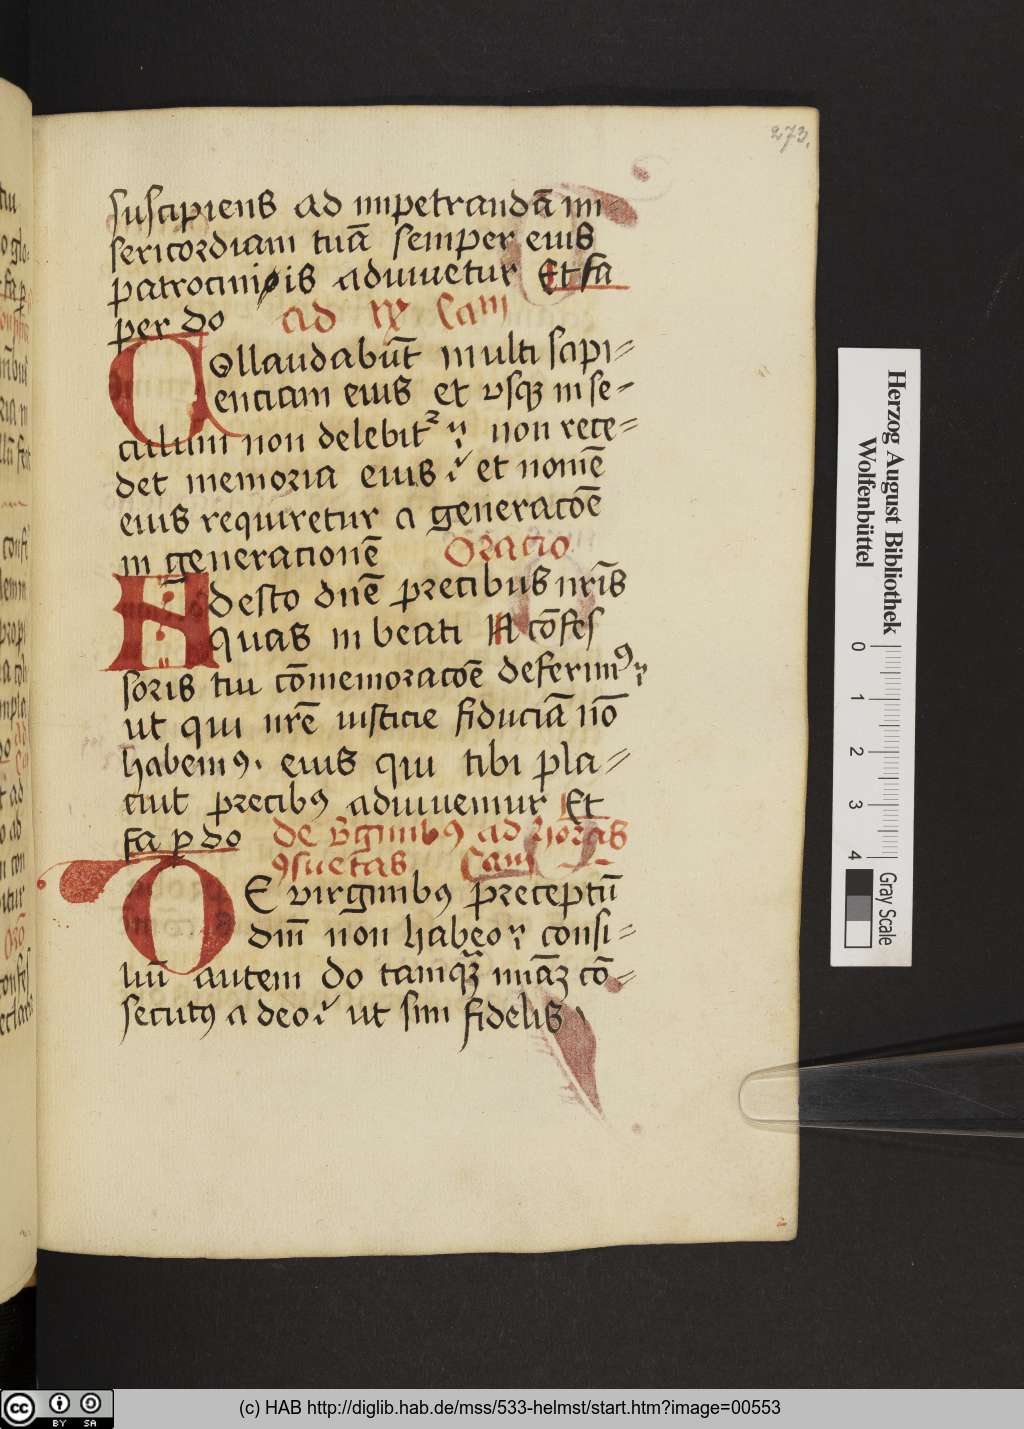 273.
suscipiens ad impetrandā mi-
sericordiam tuā semper eius
patrociniis adiuuetur Et fa
per do ad ix Cam
Collaudabūt multi sapi⸗
entiam eius et vsqꝫ in se⸗
culum non delebitᷣ non rece⸗
det memoria eius et nomē
eius requiretur a generacōe
in generacionē Oracio
Adesto dnē precibus nrīs
quas in beati N cōfes
soris tui cōmemoracōe deferimꝰ
ut qui nrē iusticie fiduciā nō
habemꝰ. eius qui tibi pla⸗
cuit precibꝰ adiuuemur Et
fa p do de v̄ginibꝰ ad horas
ꝯsuetas Cam
DE virginibꝰ preceptū
dnī non habeo consi⸗
liū autem do tamqꝫ miāꝫ cō⸗
secutꝰ a deo ut sim fidelis
Herzog August Bibliothek
Wolfenbüttel
0 1 2 3 4
Gray Scale
cc BY SA
(c) HAB http://diglib.hab.de/mss/533-helmst/start.htm?image=00553